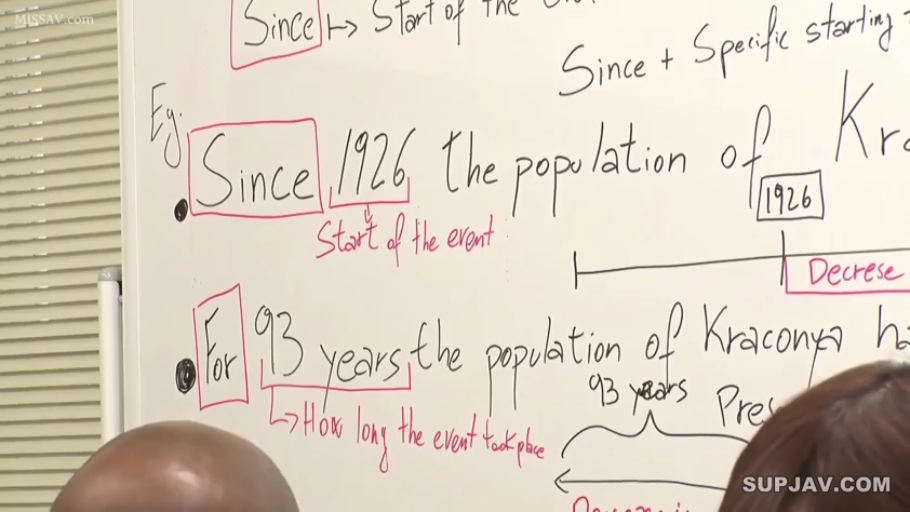 MISSAV.com
Since ↦ Start of the
Since + Specific starting
Eg.
• Since 1926 the population of
1926
Start of the event
Decrese
• For 93 years the population of Kraconya
93 years
↳ How long the event took place
SUPJAV.COM